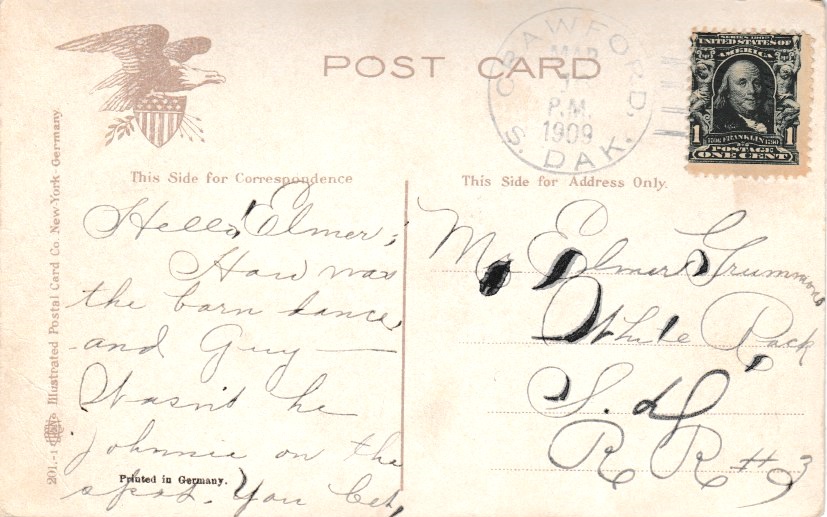 POST CARD
CRAWFORD,
MAR
P.M.
1909
S. DAK.
SERIES 1902
UNITED STATES OF
AMERICA
1 1
1706 FRANKLIN 1790
POSTAGE
ONE CENT
This Side for Correspondence
This Side for Address Only.
Hello Elmer;
How was
the barn dance
and Guy —
Wasn't he
Johnnie on the
spot. You bet,
Mr. Elmer Grummons
White Rock
S. d
R R # 3
Printed in Germany.
201.-1 Illustrated Postal Card Co. New-York-Germany.